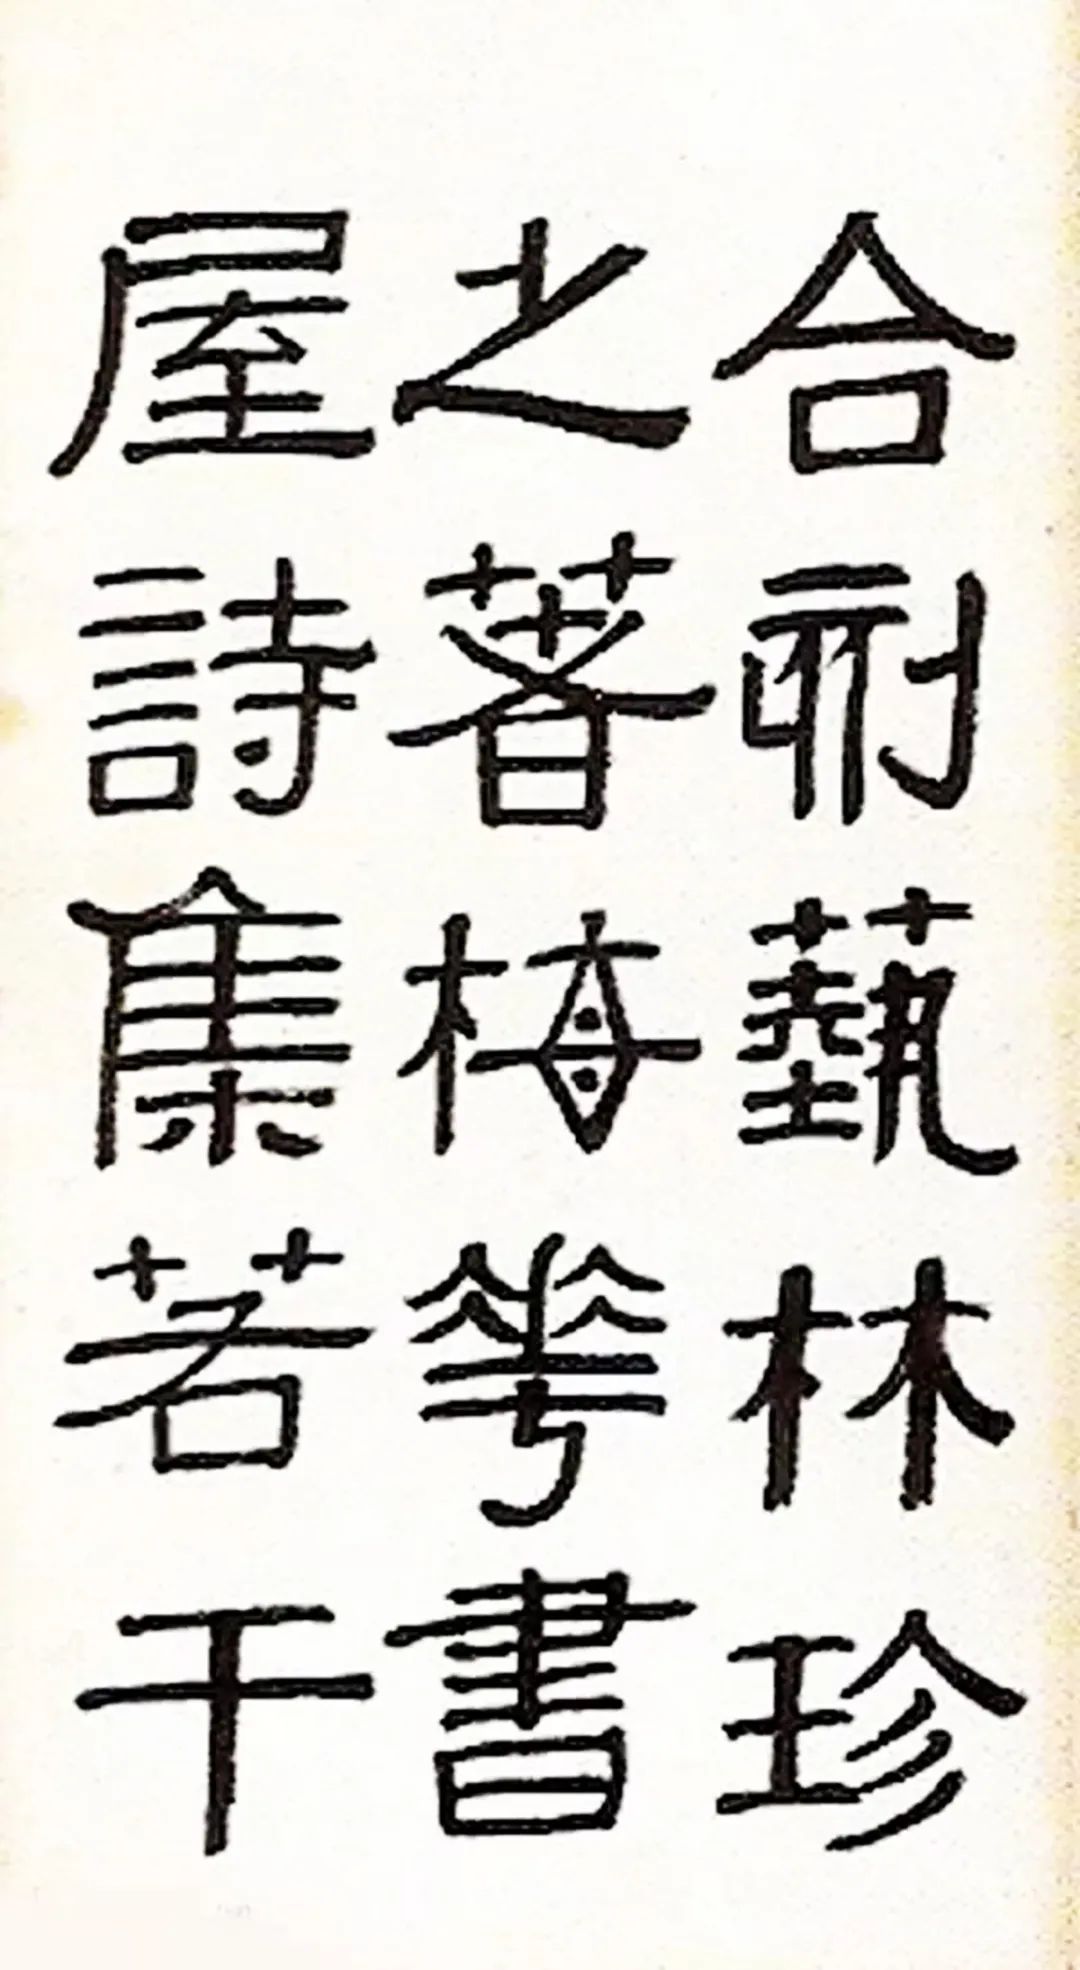 合刷藝林珍
之著梅華書
屋詩集若干